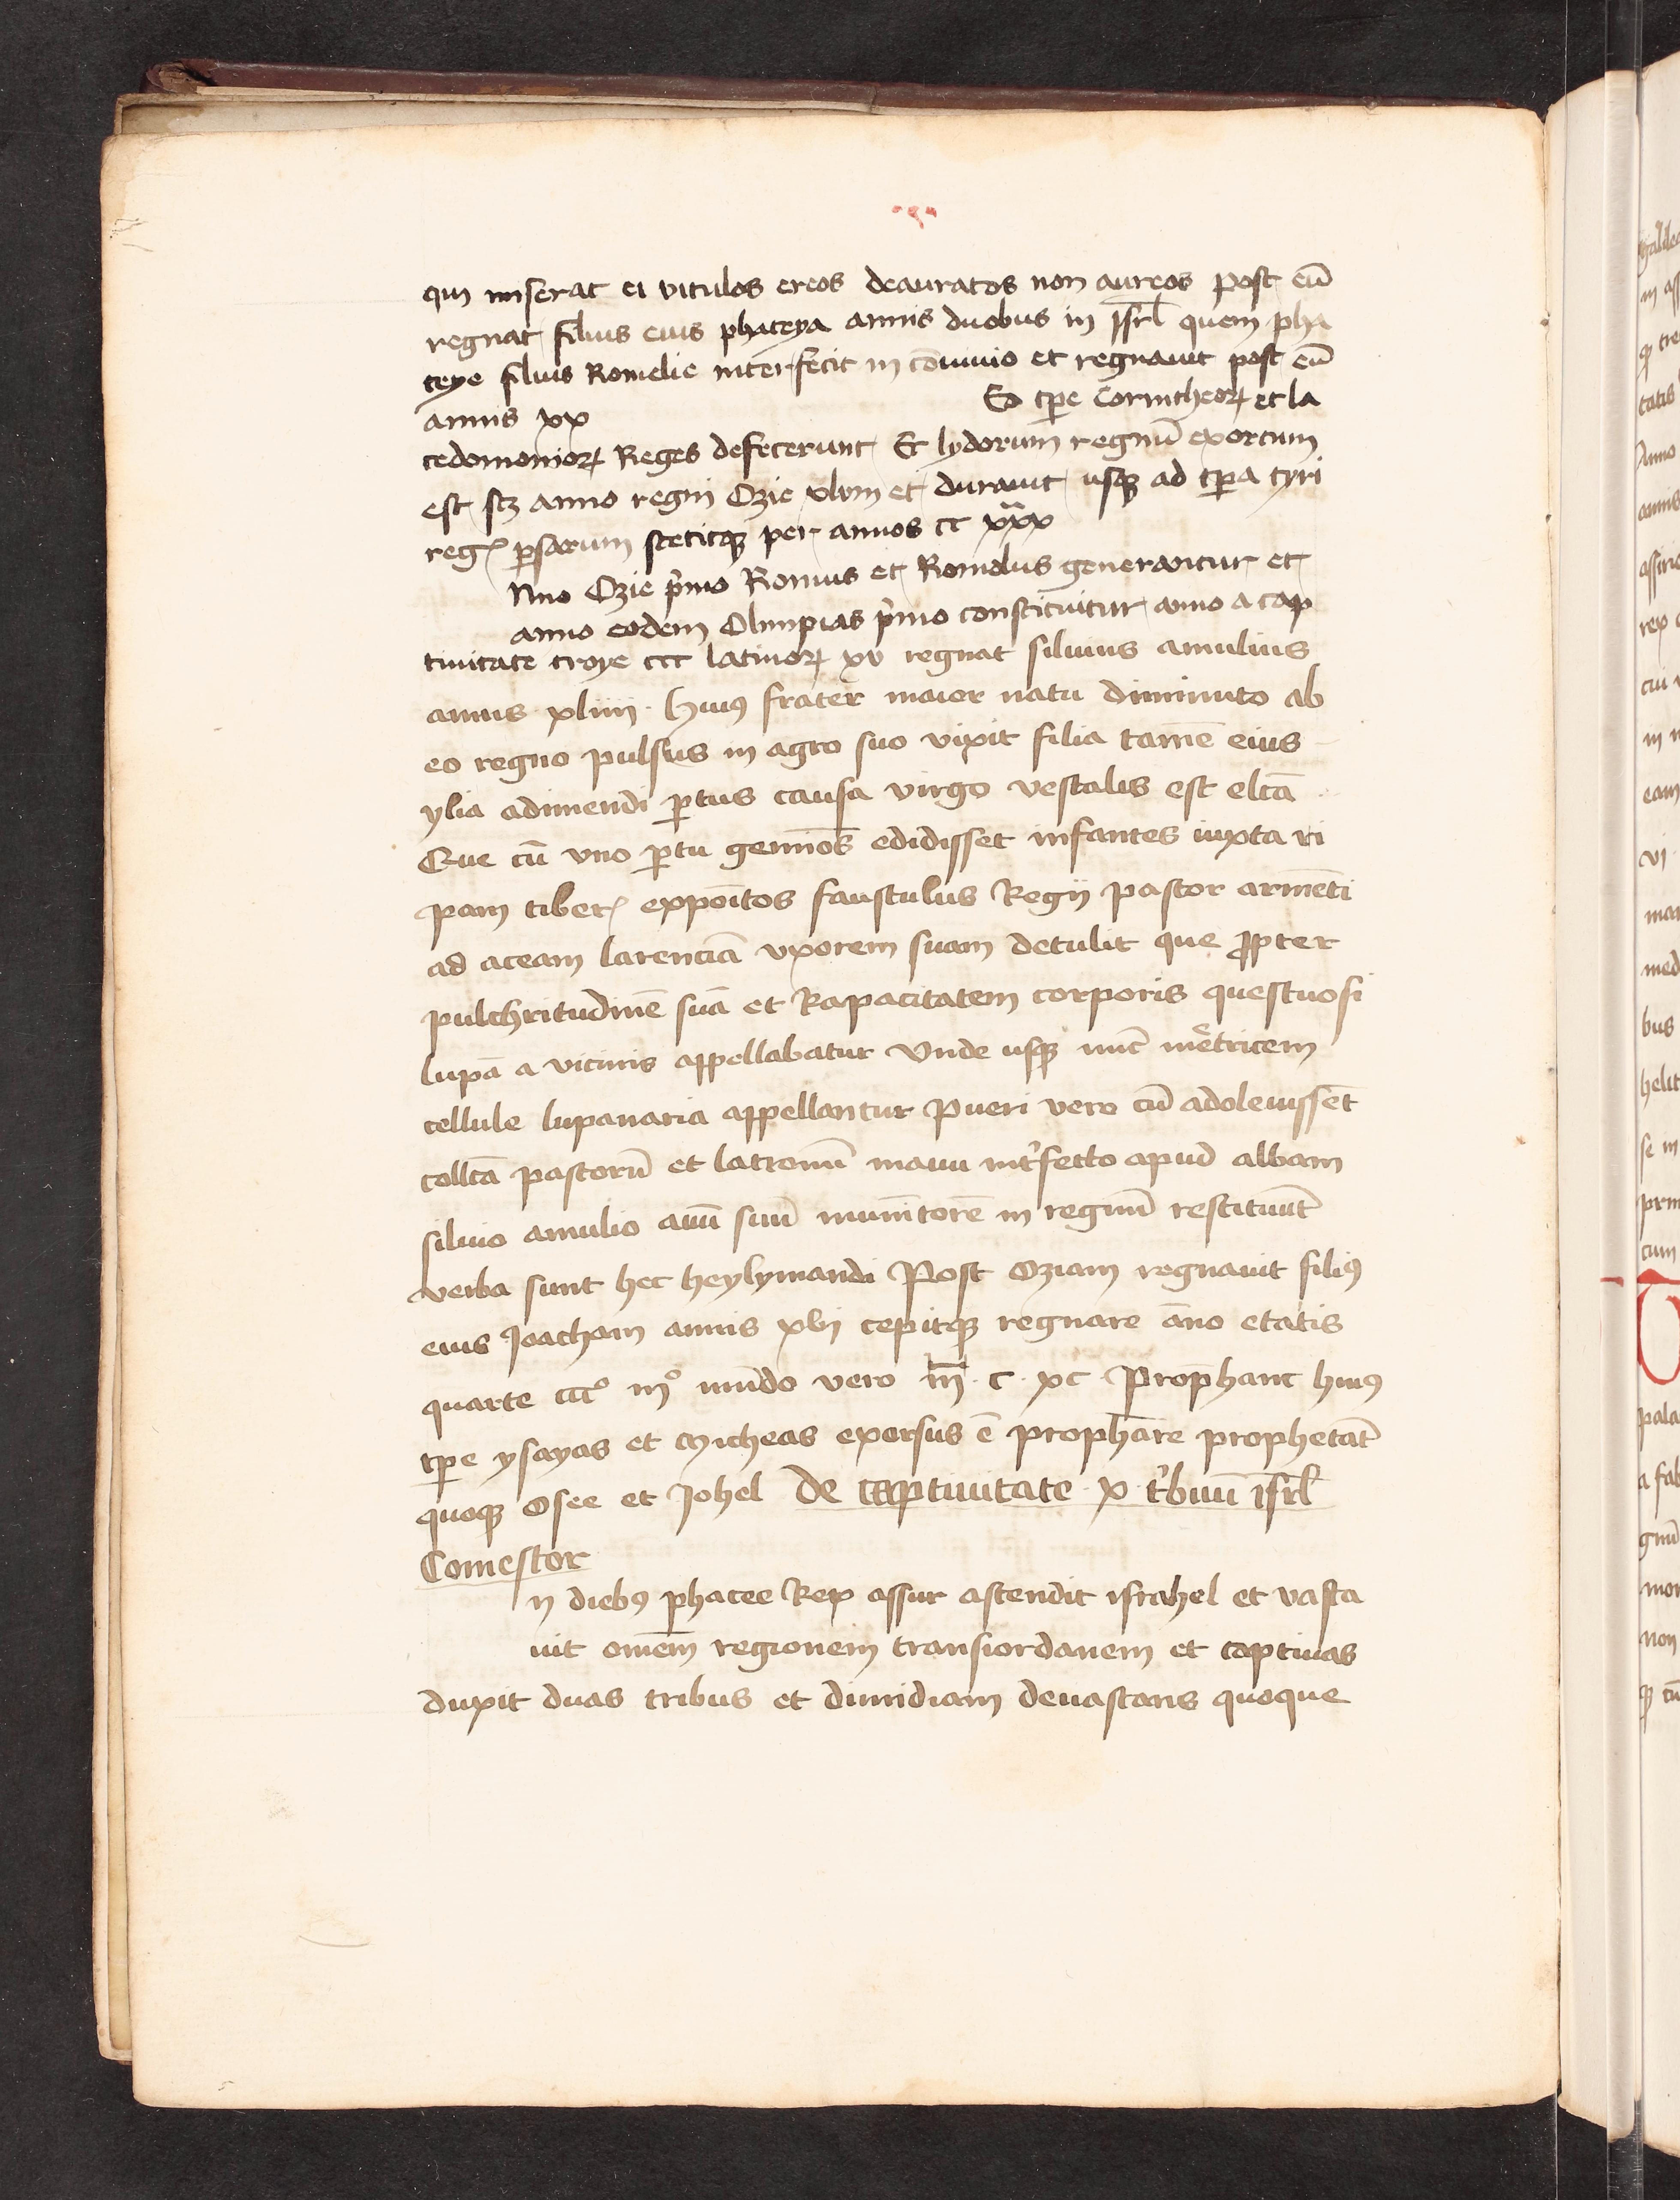 qui miserat ei vitulos ereos deauratos non aureos post eū
regnat filius eius phaceya annis duobus in isrl̄ quem pha
ceye filius Romelie interfecit in cōuiuio et regnauit post eū
annis xx Eo tꝑe Corintheoꝝ et la
cedomonioꝝ Reges defecerunt Et lydorum regnū exortum
est scꝫ anno regni Ozie et durauit usqꝫ ad tꝑa tyri
reḡ ꝑsarum stetitqꝫ per annos cc xxx
Nno Ozie p̍mo Romus et Romolus generantur et
anno eodem Olimpias p̍mo constituitur anno a cap
tiuitate troye ccc latinoꝝ xv regnat siluius amulius
annis xliiii · huiꝰ frater maior natu diminuto ab
eo regno pulsus in agro suo vixit filia tamē eius
ylia adimendi ꝑtus causa virgo vestalis est elc̄a
Que cū vno ꝑtu geminos edidisset infantes iuxta ri
pam tiber̄ expoītos faustulus Regij pastor armēti
ad aceam larenciā vxorem suam detulit que ꝓpter
pulchritudinē suā et Rapacitatem corporis questuosi
lupā a vicinis appellabatur Vnde usqꝫ nūc me̍tricem
cellule lupanaria appellantur Pueri vero cū adoleuissēt
collc̄a pastorū et latronū manu int̍fecto apud albam
siluio amulio auū suū munītorē in regnū restituūt
verba sunt hec heylymandi Post Oziam regnauit filiꝰ
eius Joacham annis xvj cepitqꝫ regnare āno etatis
quarte cccͦ iijͦ mūdo vero m̄ · c · xc · Prophant huiꝰ
tꝑe ysayas et Micheas exorsus ē prophāre prophetāt
quoqꝫ Osee et Johel De captiuitate · x · t̍buū isrl̄
Comestor
N diebꝰ phacee Rex assur ascendit israhel et vasta
uit omēm regionem transiordanem et captiuas
duxit duas tribus et dimidiam deuastans quoque